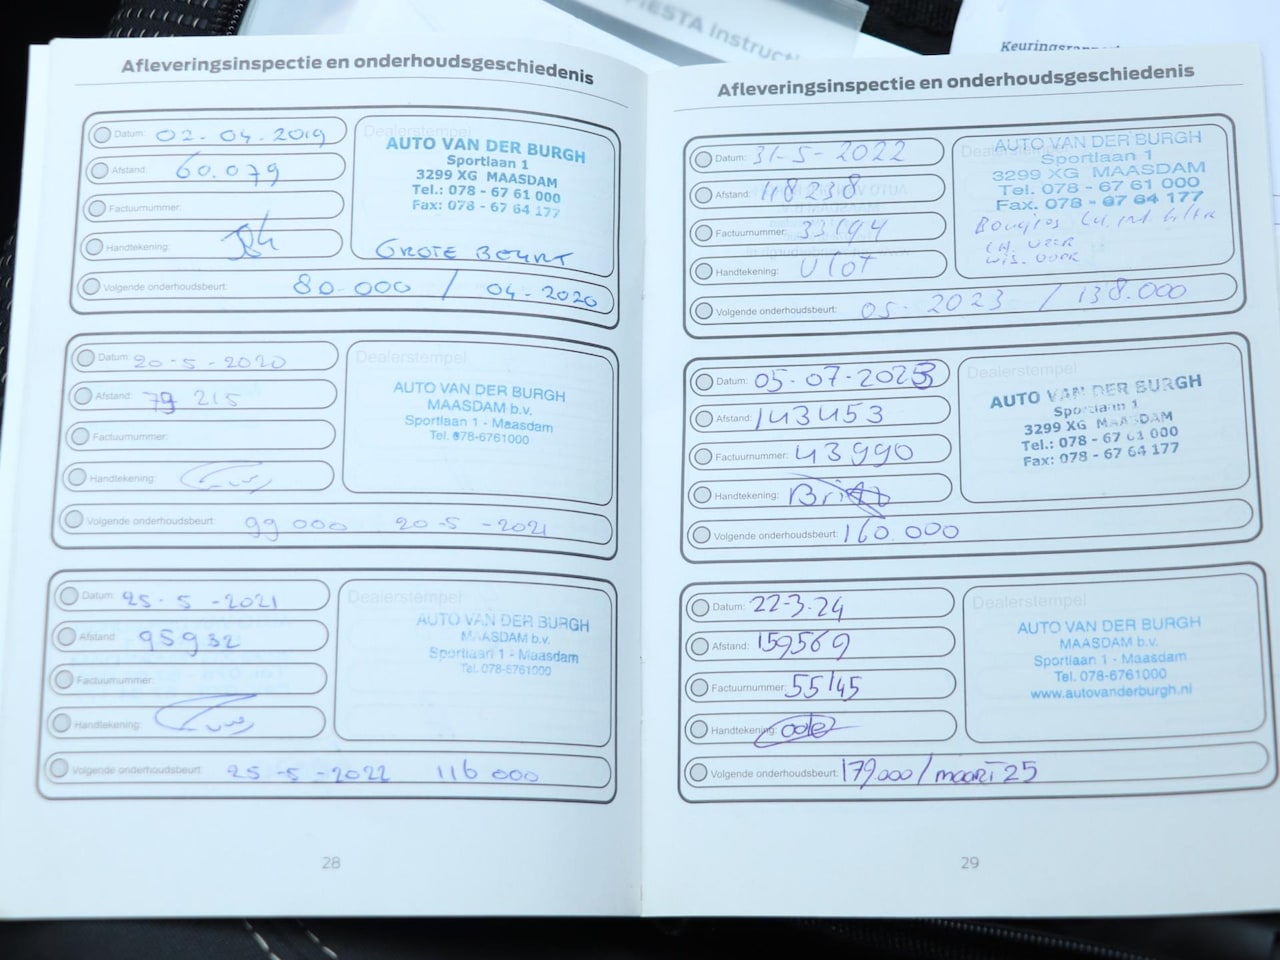 FIESTA Instructi
Keuringsrapport
Afleveringsinspectie en onderhoudsgeschiedenis
Datum: 02-04-2019
Afstand: 60.079
Factuurnummer:
Handtekening:
Volgende onderhoudsbeurt: 80.000 / 04-2020
Dealerstempel
AUTO VAN DER BURGH
Sportlaan 1
3299 XG MAASDAM
Tel.: 078 - 67 61 000
Fax: 078 - 67 64 177
GROTE BEURT
Datum: 20-5-2020
Afstand: 79 215
Factuurnummer:
Handtekening:
Volgende onderhoudsbeurt: 99 000 20-5-2021
Dealerstempel
AUTO VAN DER BURGH
MAASDAM b.v.
Sportlaan 1 - Maasdam
Tel. 078-6761000
Datum: 25-5-2021
Afstand: 95932
Factuurnummer:
Handtekening:
Volgende onderhoudsbeurt: 25-5-2022 116 000
Dealerstempel
AUTO VAN DER BURGH
MAASDAM b.v.
Sportlaan 1 - Maasdam
Tel. 078-6761000
28
Afleveringsinspectie en onderhoudsgeschiedenis
Datum: 31-5-2022
Afstand: 118 238
Factuurnummer: 33194
Handtekening:
Volgende onderhoudsbeurt: 05-2023 / 138.000
Dealerstempel
AUTO VAN DER BURGH
Sportlaan 1
3299 XG MAASDAM
Tel.: 078 - 67 61 000
Fax. 078 - 67 64 177
Bougies
Datum: 05-07-2023
Afstand: 143453
Factuurnummer: 43990
Handtekening:
Volgende onderhoudsbeurt: 160.000
Dealerstempel
AUTO VAN DER BURGH
Sportlaan 1
3299 XG MAASDAM
Tel.: 078 - 67 61 000
Fax: 078 - 67 64 177
Datum: 22-3-24
Afstand: 159569
Factuurnummer: 55145
Handtekening:
Volgende onderhoudsbeurt: 179.000/maart 25
Dealerstempel
AUTO VAN DER BURGH
MAASDAM b.v.
Sportlaan 1 - Maasdam
Tel. 078-6761000
www.autovanderburgh.nl
29